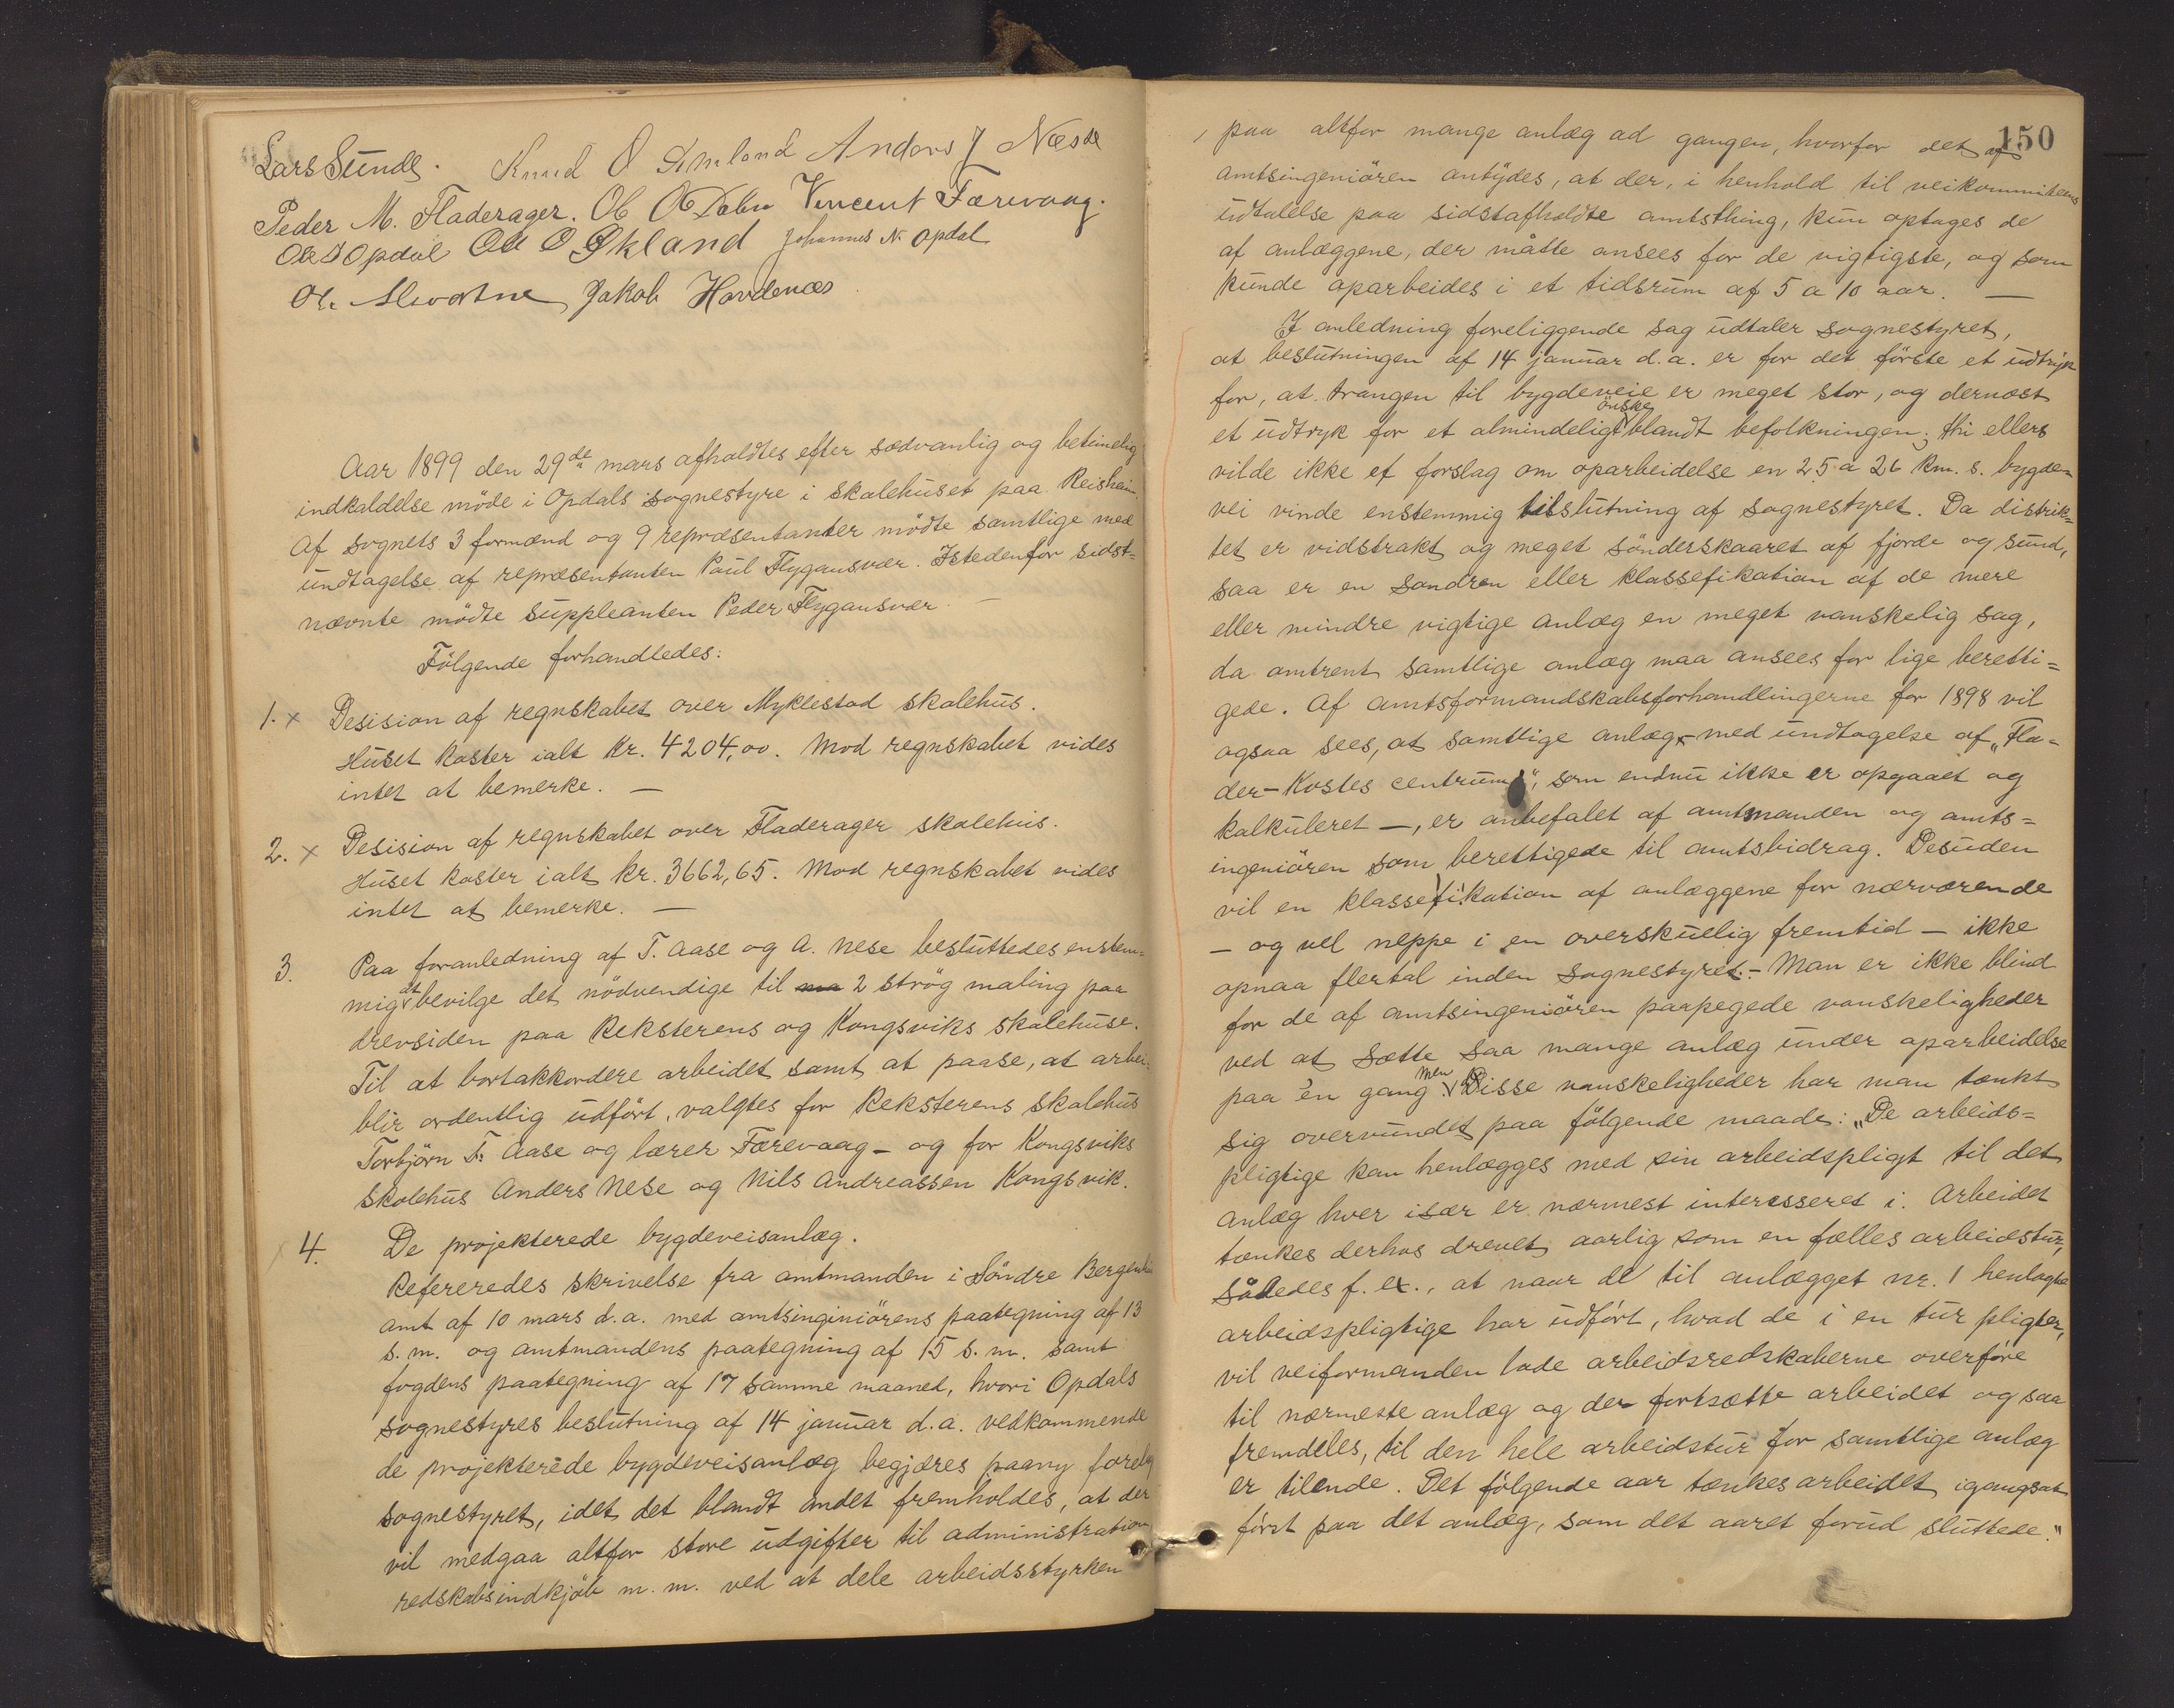 Lars Sunde. Knud O Amland Anders J Nesse
Peder M. Fladerager. Ole Vincent Færevaag.
Ole J Opdal Ole O Økland Johannes N. Opdal
Ole Jakob Havdenæs
Aar 1899 den 29de mars afholdtes efter sædvanlig og betimelig
indkaldelse möde i Opdals sognestyre i skolehuset paa Reisheim.
Af sognets 3 formænd og 9 repræsentanter mödte samtlige med
undtagelse af repræsentanten Paul Flygansvær. Istedenfor sidst=
nævnte mödte suppleanten Peder Flygansvær. —
Fölgende forhandledes:
1. x Desision af regnskabet over Myklestad skolehus.
Huset koster ialt kr. 4204,00. Mod regnskabet vides
intet at bemerke. —
2. x Desision af regnskabet over Fladerager skolehus.
Huset koster ialt kr. 3662,65. Mod regnskabet vides
intet at bemerke. —
3. Paa foranledning af T. Aase og A. Nese besluttedes enstem=
mig at bevilge det nödvendige til ma 2 strög maling paa
drevsiden paa Reksterens og Kongsviks skolehuse.
Til at bortakkordere arbeidet samt at paase, at arbei=
blir ordentlig udfört, valgtes for Reksterens skolehus
Torbjörn T. Aase og lærer Færevaag – og for Kongsviks
skolehus Anders Nese og Nils Andreassen Kongsvik.
4. De projekterede bygdeveisanlæg.
Refereredes skrivelse fra amtmanden i Söndre Bergenhus
amt af 10 mars d.a. med amtsinginiörens paategning af 13
s.m. og amtmandens paategning af 15 s.m. samt
fogdens paategning af 17 samme maaned, hvori Opdals
sognestyres beslutning af 14 januar d.a. vedkommende
de projekterede bygdeveisanlæg begjæres paany forelag
sognestyret, idet det blandt andet fremholdes, at der
vil medgaa altfor store udgifter til administration
redskabsindkjöb m.m. ved at dele arbeidsstyrken
150
paa altfor mange anlæg ad gangen, hvorfor det af
amtsingeniören antydes, at der, i henhold til veikommiteens
udtalelse paa sidstafholdte amtsthing, kun optages de
af anlæggene, der måtte ansees for de vigtigste, og som
kunde oparbeides i et tidsrum af 5 a 10 aar. —
I anledning foreliggende sag udtaler sognestyret,
at beslutningen af 14 januar d.a. er for det förste et udtryk
for, at trangen til bygdeveie er meget stor, og dernæst
et udtryk for et almindeligt önske blandt befolkningen; thi ellers
vilde ikke et forslag om oparbeidelse en 25 a 26 km. s. bygde=
vei vinde enstemmig tilslutning af sognestyret. Da distrik=
tet er vidstrakt og meget sönderskaaret af fjorde og sund,
saa er en sondren eller klassefikation af de mere
eller mindre vigtige anlæg en meget vanskelig sag,
da omtrent samtlige anlæg maa ansees for lige beretti=
gede. Af amtsformandskabsforhandlingerne for 1898 vil
ogsaa sees, at samtlige anlæg – med undtagelse af „Fla=
der–Kostes centrum“, som endnu ikke er opgaaet og
kalkuleret –, er anbefalet af amtmanden og amts=
ingeniören som berettigede til amtsbidrag. Desuden
vil en klassefikation af anlæggene for nærværende
– og vel neppe i en overskuelig fremtid – ikke
opnaa flertal inden sognestyret. – Man er ikke blind
for de af amtsingeniören paapegede vanskeligheder
ved at sætte saa mange anlæg under oparbeidelse
paa én gang. Men Disse vanskeligheder har man tænkt
sig overvundet paa fölgende maade: „De arbeids=
pligtige kan henlægges med sin arbeidspligt til det
anlæg hver især er nærmest interesseret i. Arbeidet
tænkes derhos drevet aarlig som en fælles arbeidstur,
således f. ex., at naar de til anlægget nr. 1 henlagte
arbeidspligtige har udfört, hvad de i en tur pligter,
vil veiformanden lade arbeidsredskaberne overföre
til nærmeste anlæg og der fortsætte arbeidet og saa
fremdeles, til den hele arbeidstur for samtlige anlæg
er tilende. Det fölgende aar tænkes arbeidet igangsat
först paa det anlæg, som det aaret forud sluttede.“